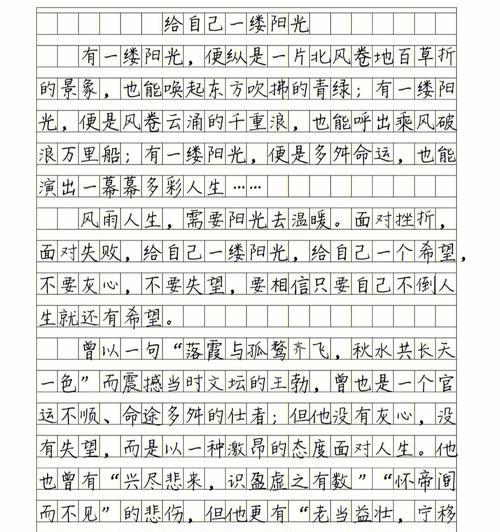 给自己一缕阳光
有一缕阳光，便纵是一片北风卷地百草折
的景象，也能唤起东方吹拂的青绿；有一缕阳
光，便是风卷云涌的千重浪，也能呼出乘风破
浪万里船；有一缕阳光，便是多舛命运，也能
演出一幕幕多彩人生……
风雨人生，需要阳光去温暖。面对挫折，
面对失败，给自己一缕阳光，给自己一个希望，
不要灰心，不要失望，要相信只要自己不倒人
生就还有希望。
曾以一句“落霞与孤鹜齐飞，秋水共长天
一色”而震撼当时文坛的王勃，曾也是一个官
运不顺、命途多舛的仕者；但他没有灰心，没
有失望，而是以一种激昂的态度面对人生。他
也曾有“兴尽悲来，识盈虚之有数”“怀帝阍
而不见”的悲伤，但他更有“老当益壮，宁移